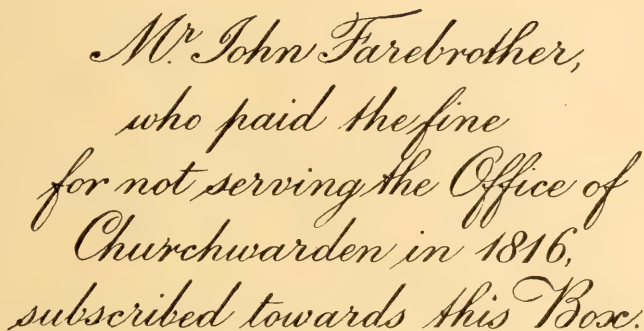 Mr. John Farebrother,
who paid the fine
for not serving the Office of
Churchwarden in 1816,
subscribed towards this Box.